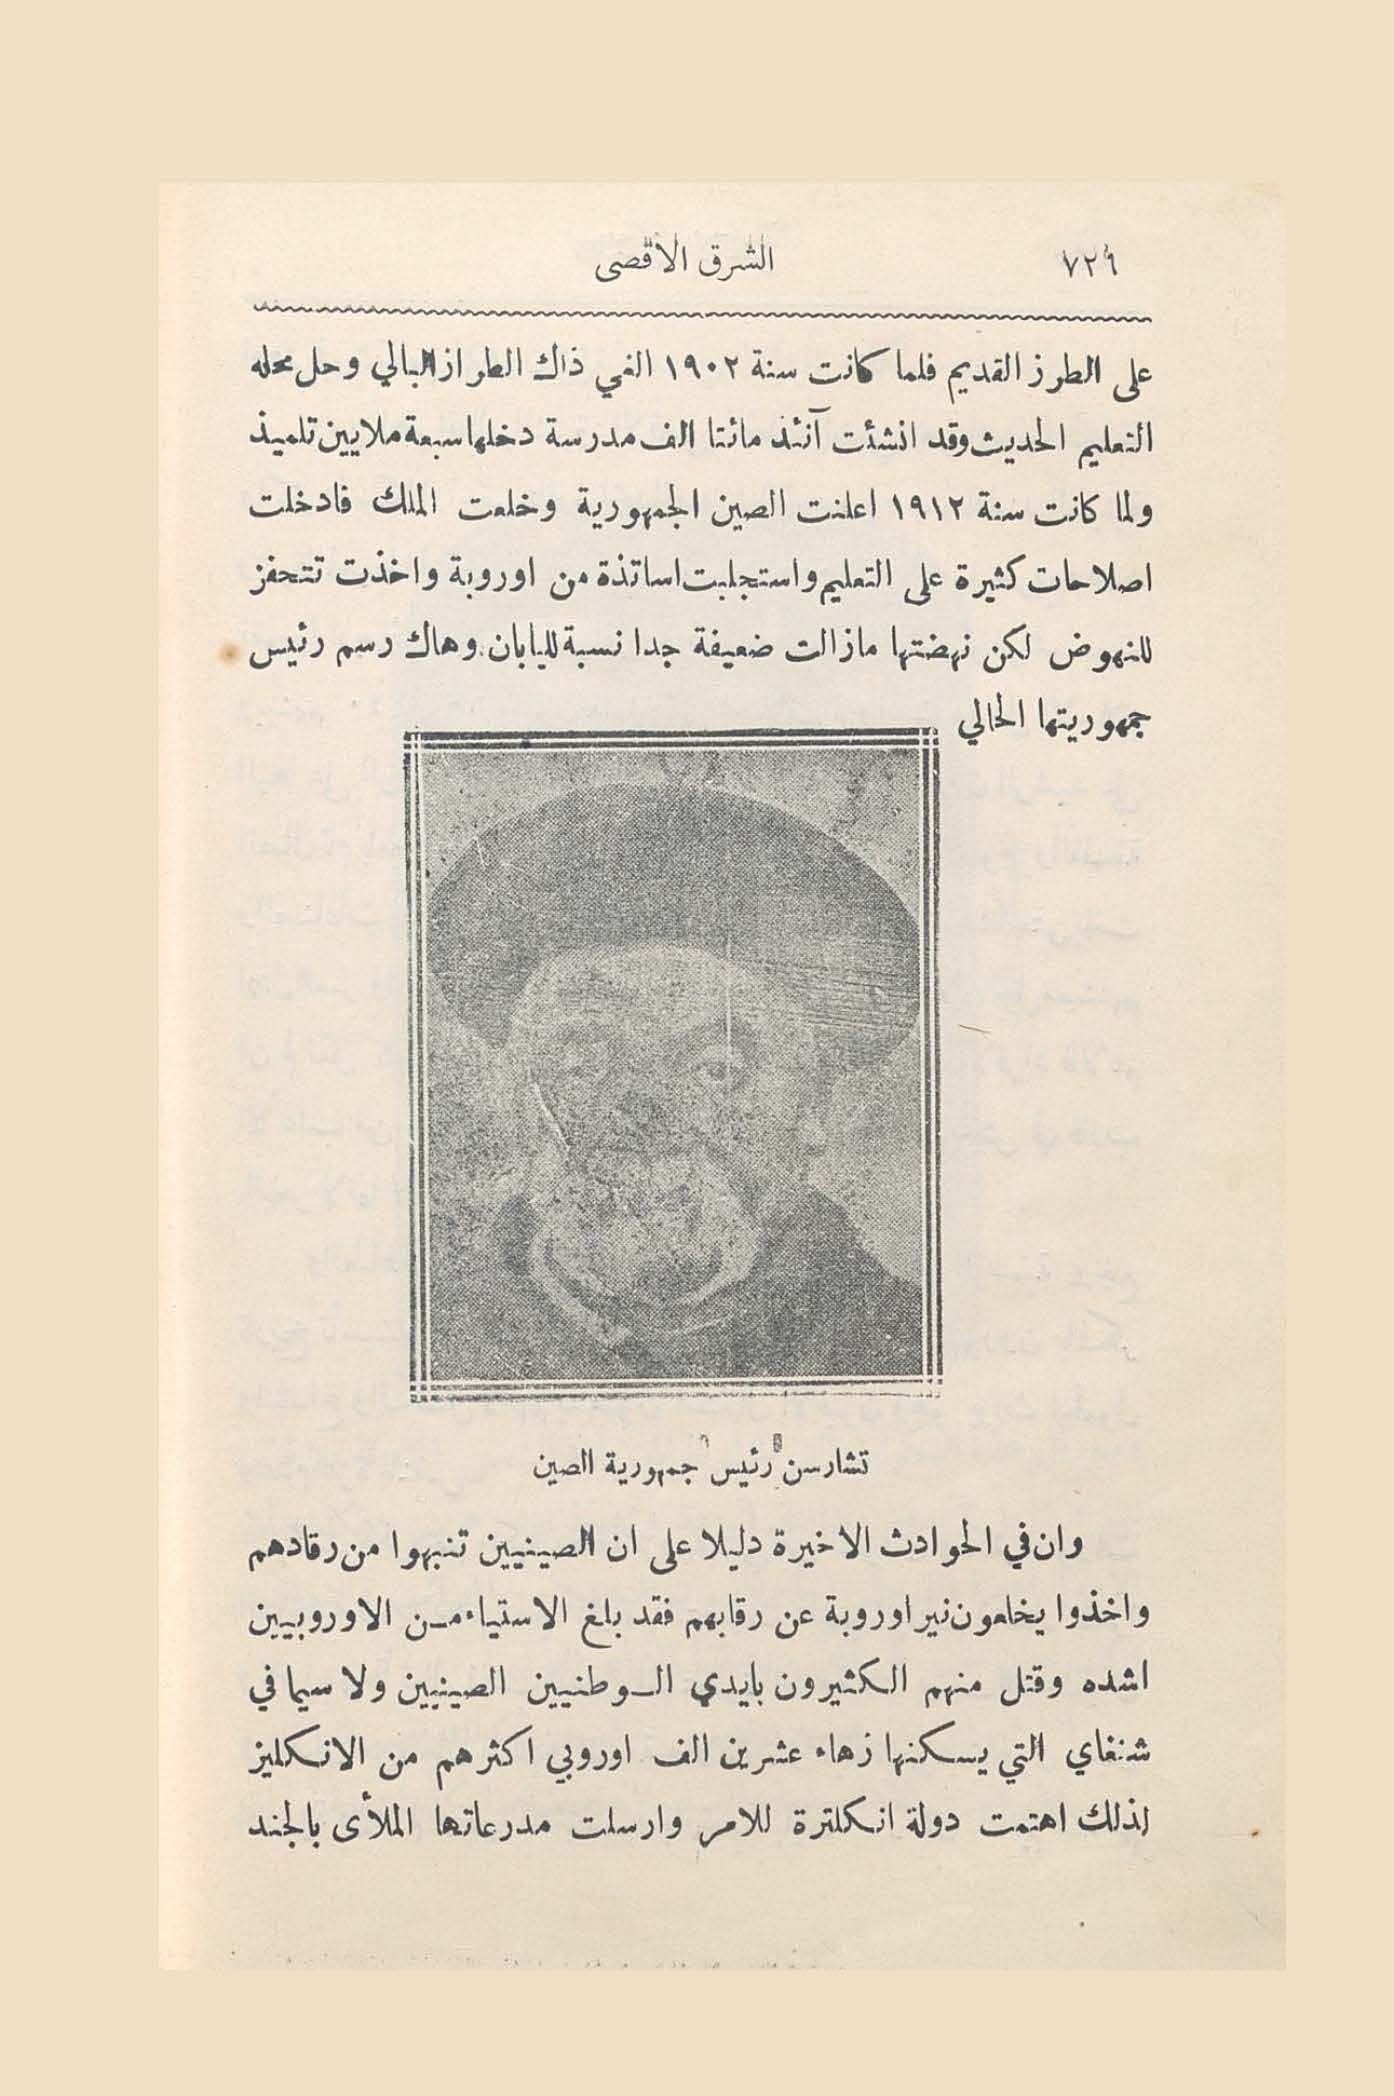 ٧٢٩
الشرق الاقصى
على الطرز القديم فلما كانت سنة ١٩٠٢ الغي ذاك الطراز البالي وحل محله
التعليم الحديث وقد انشئت آنئذ مائتا الف مدرسة دخلها سبعة ملايين تلميذ
ولما كانت سنة ١٩١٢ اعلنت الصين الجمهورية وخلعت الملك فادخلت
اصلاحات كثيرة على التعليم واستجلبت اساتذة من اوروبة واخذت تتحفز
للنهوض لكن نهضتها مازالت ضعيفة جدا نسبة لليابان. وهاك رسم رئيس
جمهوريتها الحالي
تشارسن رئيس جمهورية الصين
وان في الحوادث الاخيرة دليلا على ان الصينيين تنبهوا من رقادهم
واخذوا يخلعون نير اوروبة عن رقابهم فقد بلغ الاستياء مـن الاوروبيين
اشده وقتل منهم الكثيرون بايدي الـوطنيين الصينيين ولا سيما في
شنغاي التي يسكنها زهاء عشرين الف اوروبي اكثرهم من الانكليز
لذلك اهتمت دولة انكلترة للامر وارسلت مدرعاتها الملأى بالجند